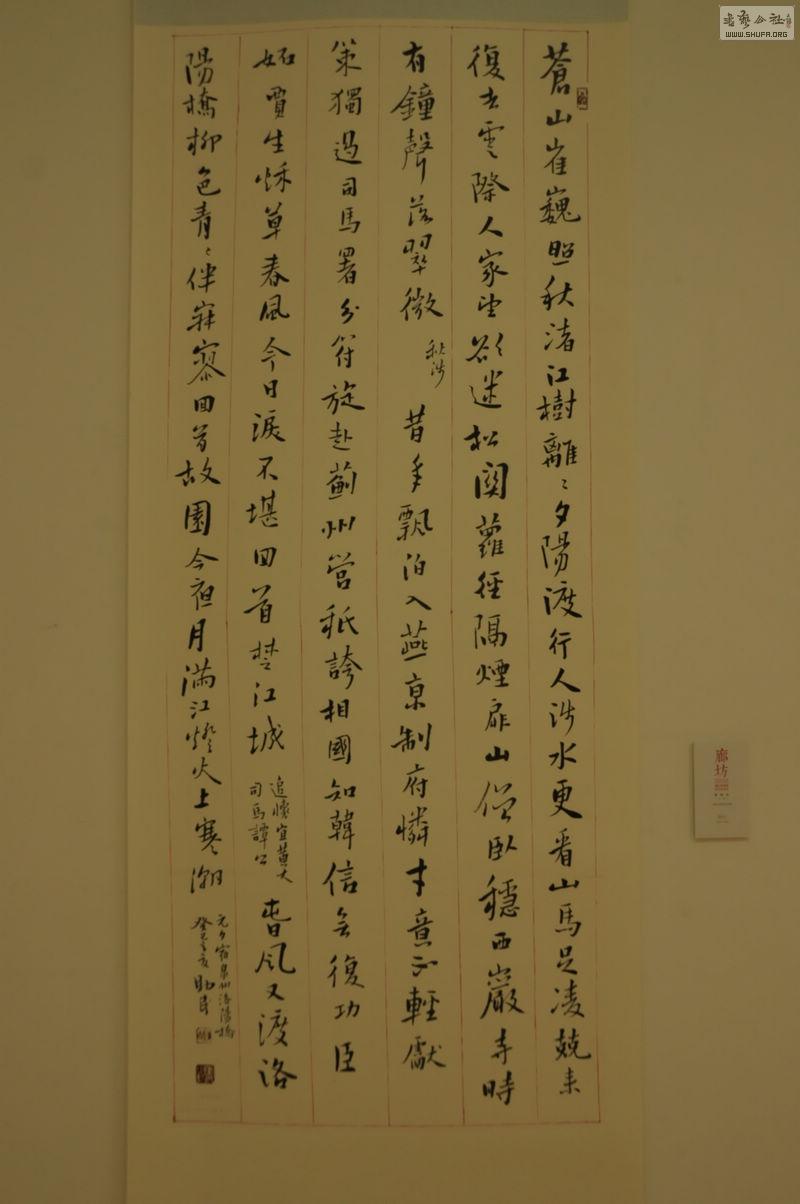 蒼山崔巍照秋渚江樹離〻夕陽渡行人涉水更看山馬足凌兢未
復去雲際人家望欲迷松關蘿徑隔煙扉山僧臥穩西巖寺時
有鐘聲落翠微
秋涉
昔年飄泊入燕京制府憐才意正輕獻
策獨過司馬署分符旋赴薊州營秖誇相國知韓信無復功臣
妬賈生 草春風今日淚不堪回首楚江城
追懷宜黃大
司馬譚公
春風又渡洛
陽橋柳色青〻伴寂寥回首故園今夜月滿江燈火上寒潮
元夕宿泉州洛陽橋
癸巳
廊坊
書藝公社
WWW.SHUFA.ORG